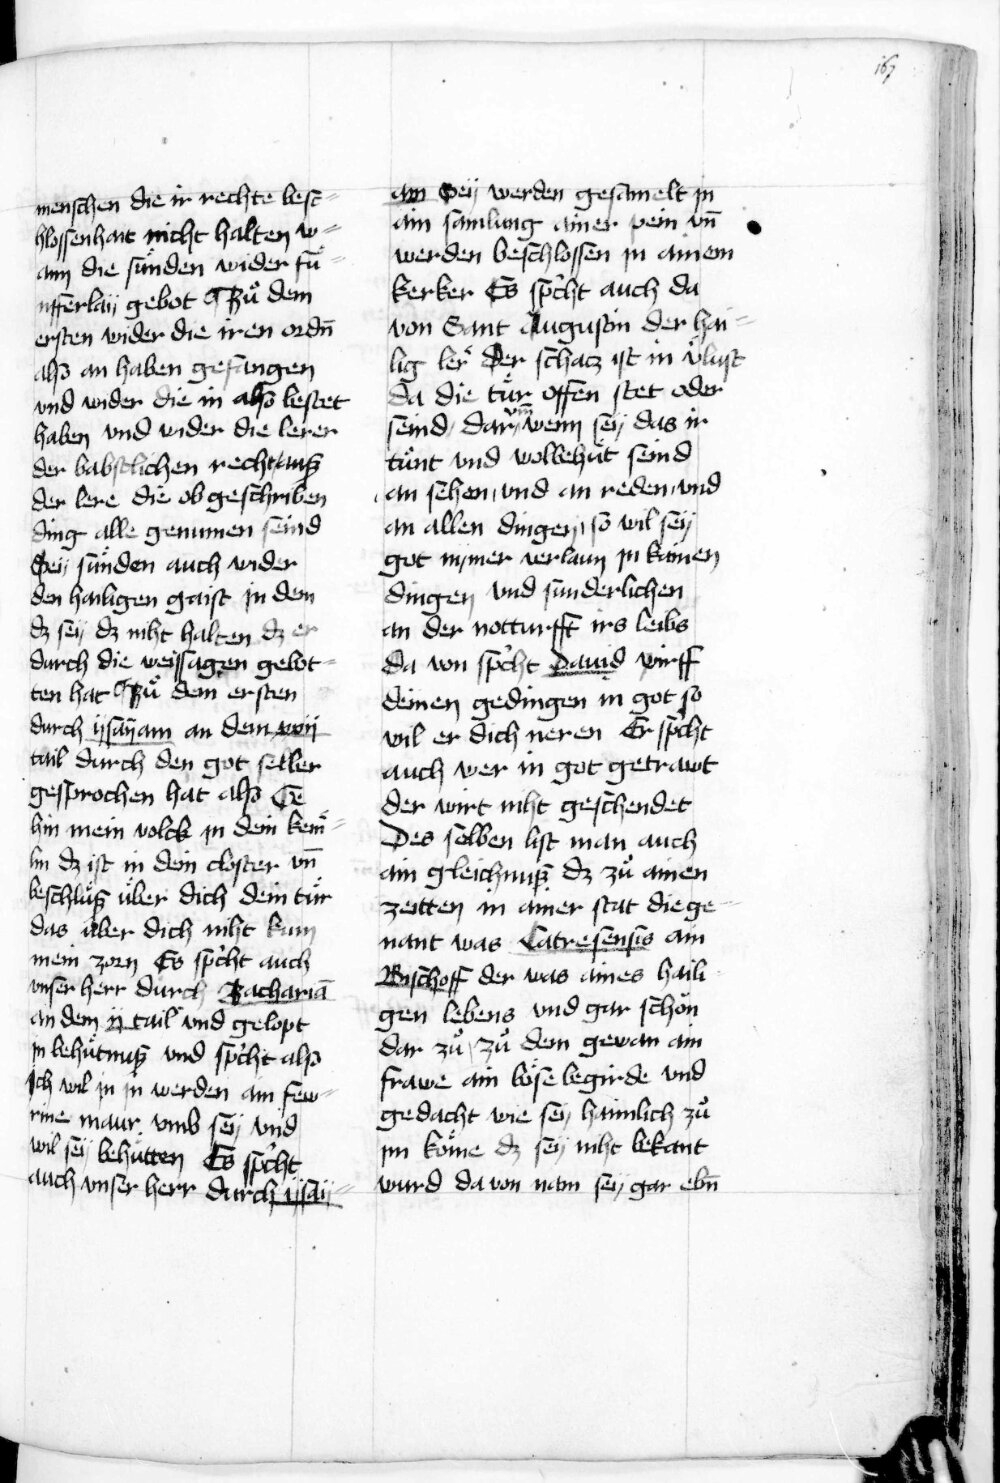 167
menschen die ir rechte besc=
hlossenhait nicht halten w=
ann die sünden wider fü=
nfferlaÿ gebot Zů dem
ersten wider die iren ordn̄
also an haben gefangen
vnd wider die in also bestet
haben vnd wider die lerer
der babstlichen recht auß
der lere die ob geschriben
ding alle genumen seind
Seÿ sünden auch wider
den hailigen gaist in dem
dz seÿ dz niht halten dz er
durch die weissagen gebot=
ten hat Zů dem ersten
durch ÿsaÿam an dem xxvij
tail durch den got selber
gesprochen hat also Ge
hin mein volck in dein kem̈=
lin dz ist in dein closter vn̄
beschlüß über dich dein tür
das über dich niht kum
mein zorn Es spͥcht auch
vnser herr durch Zachariā
an dem ij tail vnd gelopt
in behütnuß vnd spͥcht also
Ich wil in in werden ain few=
rine maur vmb seÿ vnd
wil seÿ behütten Es spͥcht
auch vnser herr durch ÿsaÿ=
am Seÿ werden gesamelt in
ain samlung ainer pein vn̄
werden beschlossen in ainem
kerker Es spͥcht auch da
von Sant Augustin der hai=
lig ler̄ Der schatz ist in v̈lust
da die tür offen stet oder
seind, dar vm̄ wenn seÿ das ir
tünt vnd wolbehüt seind
an sehen, vnd an reden, vnd
an allen dingen, so wil seÿ
got nÿmer verlaun in kainen
dingen vnd sunderlichen
an der notturfft irs leibs
da von spͥcht Dauid wirff
deinen gedingen in got so
wil er dich neren Er spͥcht
auch wer in got getrawt
der wirt niht geschendet
Des selben list man auch
ain gleichnuß dz zů ainen
zeitten in ainer stat die ge=
nant was Catresensis ain
Bischoff der was aines haili=
gen lebens vnd gar schön
dar zů, zů dem gewan ain
frawe ain böse begirde vnd
gedacht wie seÿ haimlich zů
im köme dz seÿ niht bekant
wurd da von nam seÿ gar ebn̄